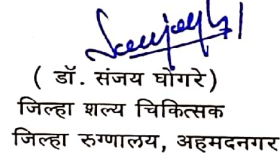 ( डॉ. संजय घोगरे)
जिल्हा शल्य चिकित्सक
जिल्हा रुग्णालय, अहमदनगर